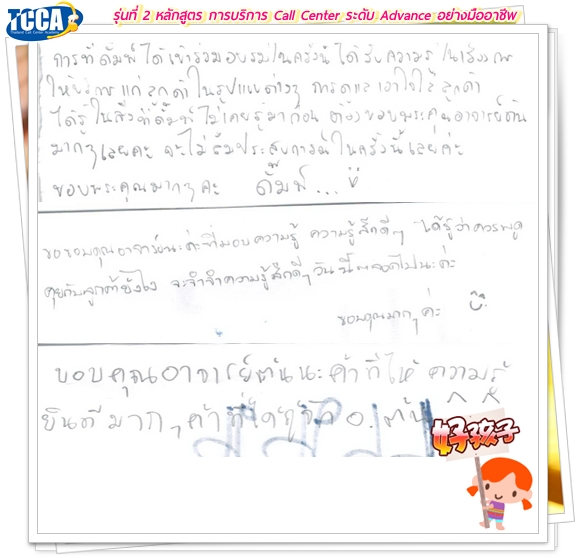 TCCA
Thailand Call Center Academy
รุ่นที่ 2 หลักสูตร การบริการ Call Center ระดับ Advance อย่างมืออาชีพ
การที่ดั๊มพ์ได้เข้าร่วมอบรมในครั้งนี้ ได้รับความรู้ในเรื่องการ
ให้บริการแก่ลูกค้าในรูปแบบต่างๆ การดูแลเอาใจใส่ลูกค้า
ได้รู้ในสิ่งที่ดั๊มพ์ไม่เคยรู้มาก่อน ต้องขอบพระคุณอาจารย์ต้น
มากๆเลยคะ จะไม่ลืมประสบการณ์ในครั้งนี้เลยค่ะ
ขอบพระคุณมากๆคะ ดั๊มพ์...
ขอขอบคุณอาจารย์นะค่ะที่มอบความรู้ ความรู้สึกดีๆ ได้รู้ว่าควรพูด
คุยกับลูกค้ายังไง จะจำจำความรู้สึกดีๆ วันนี้ตลอดไปนะค่ะ
ขอบคุณมากๆค่ะ
ขอบคุณอาจารย์ต้นนะค้าที่ให้ความรู้
ยินดีมากๆค้าที่ได้รู้จัก อ.ต้น ^ ^
好孩子